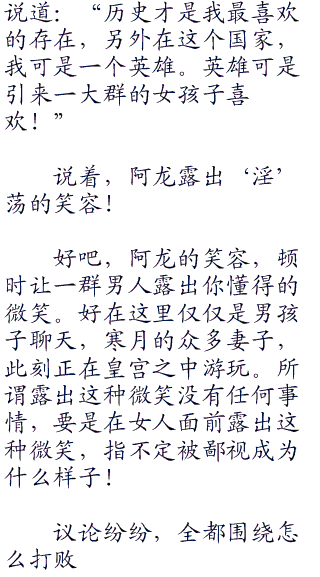 说道：“历史才是我最喜欢
的存在，另外在这个国家，
我可是一个英雄。英雄可是
引来一大群的女孩子喜
欢！”
说着，阿龙露出‘淫’
荡的笑容！
好吧，阿龙的笑容，顿
时让一群男人露出你懂得的
微笑。好在这里仅仅是男孩
子聊天，寒月的众多妻子，
此刻正在皇宫之中游玩。所
谓露出这种微笑没有任何事
情，要是在女人面前露出这
种微笑，指不定被鄙视成为
什么样子！
议论纷纷，全都围绕怎
么打败